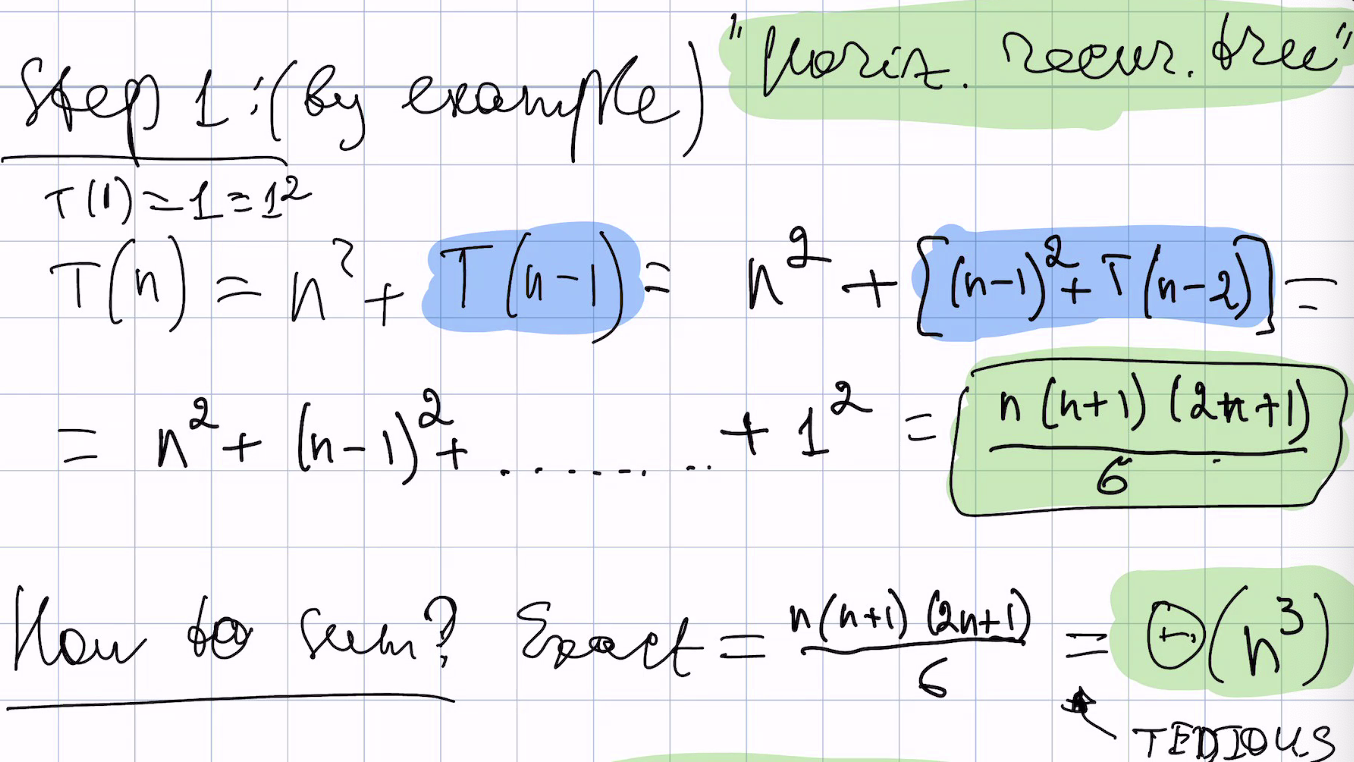 Step 1: (by example) "horiz. recur. tree"
T(1) = 1 = 1²
T(n) = n² + T(n-1) = n² + [(n-1)² + T(n-2)] =
= n² + (n-1)² + ........... + 1² = n(n+1)(2n+1)/6
How to sum? Exact = n(n+1)(2n+1)/6 = Θ(n³)
TEDIOUS